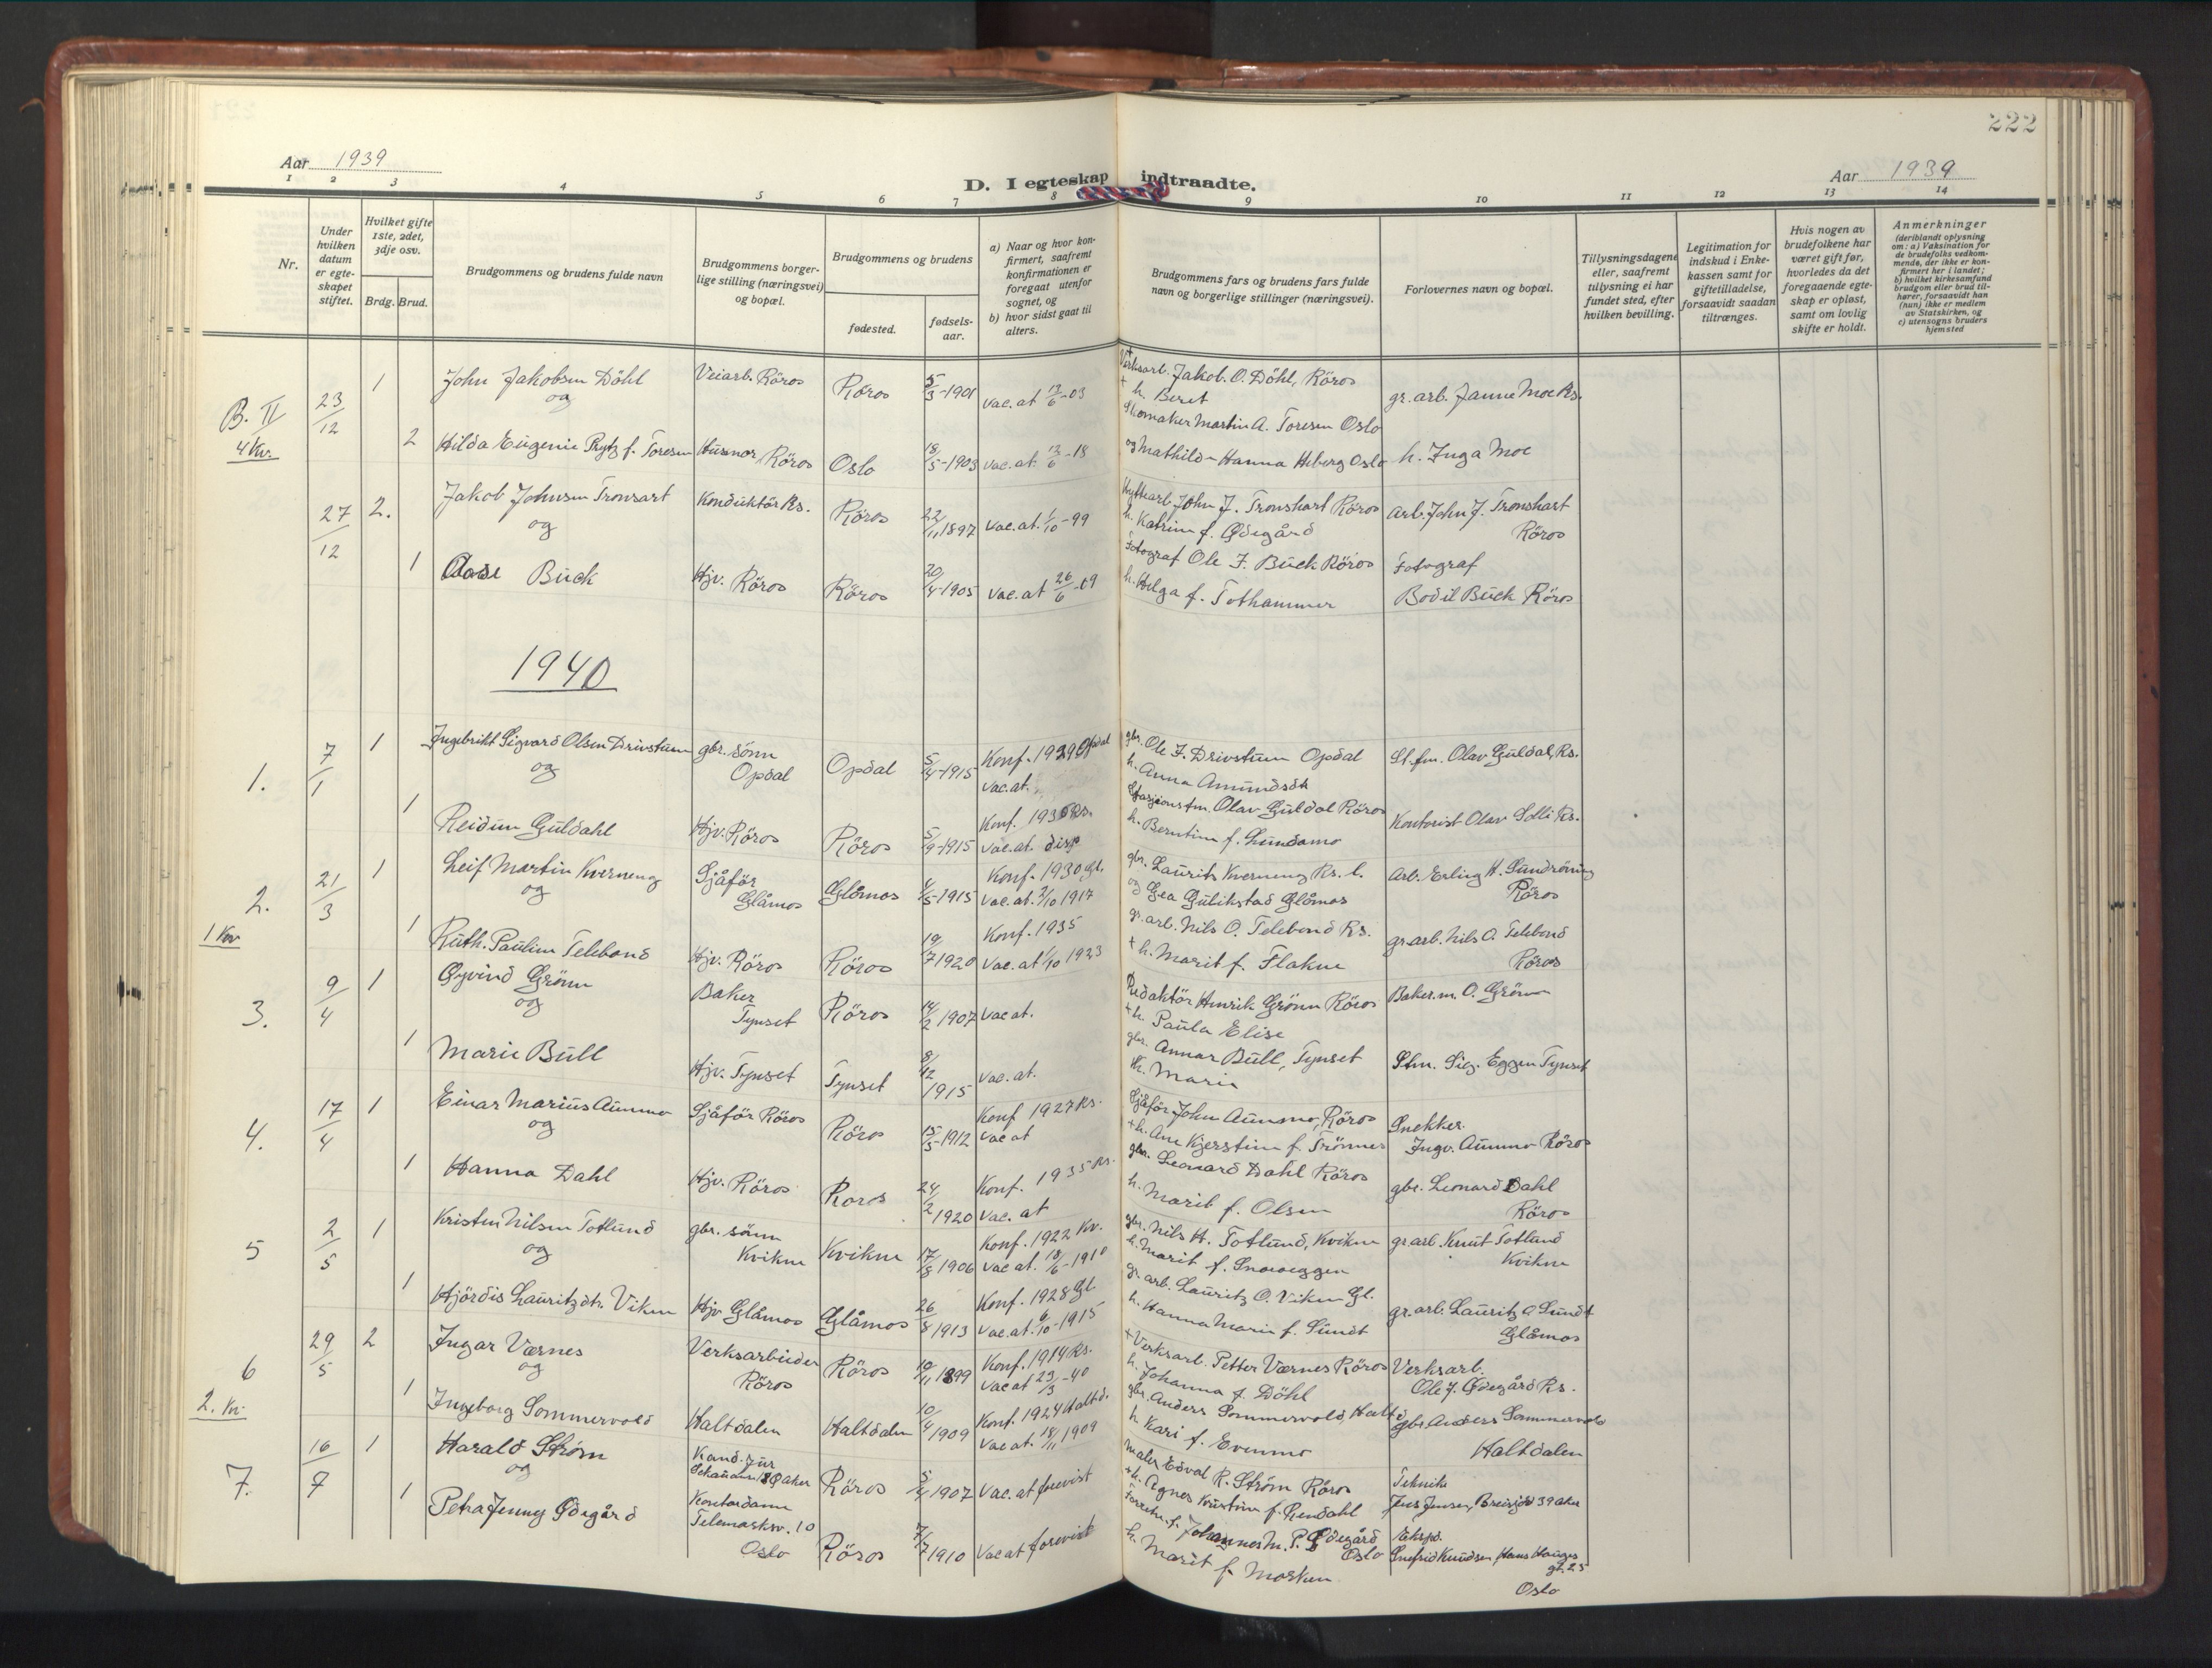 222
Aar 1939
D. I egteskap indtraadte.
Aar 1939
1 2 3 4 5 6 7 8 9 10 11 12 13 14
Nr.
Under hvilken datum er egte-skapet stiftet.
Hvilket gifte 1ste, 2det, 3dje osv.
Brdg. Brud.
Brudgommens og brudens fulde navn
Brudgommens borger-lige stilling (næringsvei) og bopæl.
Brudgommens og brudens
fødested.
fødsels-aar.
a) Naar og hvor kon-firmert, saafremt konfirmationen er foregaat utenfor sognet, og
b) hvor sidst gaat til alters.
Brudgommens fars og brudens fars fulde navn og borgerlige stillinger (næringsvei).
Forlovernes navn og bopæl.
Tillysningsdagene eller, saafremt tillysning ei har fundet sted, efter hvilken bevilling.
Legitimation for indskud i Enke-kassen samt for giftetilladelse, forsaavidt saadan tiltrænges.
Hvis nogen av brudefolkene har været gift før, hvorledes da det foregaaende egte-skap er opløst, samt om lovlig skifte er holdt.
Anmerkninger
(deriblandt oplysning om: a) Vaksination for de brudefolks vedkom-mende, der ikke er kon-firmert her i landet; b) hvilket kirkesamfund brudgom eller brud til-hører, forsaavidt han (hun) ikke er medlem av Statskirken, og c) utensogns bruders hjemsted
B. II 4 Kv. 23/12 1 John Jakobsen Döhl Veiarb. Röros Röros 5/3-1901 vac. at 13/6-03 + Verksarb. Jakob. O. Döhl, Röros gr. arb. Janne Moe Rs.
og + h. Beret
2 Hilda Eugenie Prytz f. Toresen Husmor, Röros Oslo 18/5-1903 vac. at. 13/6-18 Skomaker Martin A. Toresen Oslo h. Inga Moe
og Mathilde Hanna Heberg Oslo
27/12 2. Jakob Johnsen Tronsart Konduktör Rs. Röros 22/11 1897 vac. at. 1/10-99 Hyttearb. John J. Tronshart Röros arb. John J. Tronshart
og h. Katrine f. Ødegård Röros
1 Aase Buck Hjv. Röros Röros 20/4-1905 vac. at 26/6-09 Fotograf Ole F. Buck Röros Fotograf
h. Helga f. Tothammer Bodil Buck Röros
1940
1. 7/1 1 Ingebrikt Sigvard Olsen Drivstuen gbr. sönn Opdal Opdal 5/4-1915 Konf. 1929 Opdal vac. at. gbr. Ole F. Drivstuen Opdal St.fm. Olav Guldal, Rs.
og h. Anna Amundsdt
1 Reidun Guldahl Hjv. Röros Röros 5/9-1915 Konf. 1930 Rs. vac. at. disp Stasjonsfm. Olav Guldal Röros Kontorist Olav Solli Rs.
h. Berntine f. Lundamo
2. 1 Kv 21/3 1 Leif Martin Kverneng Sjåför Glåmos Glåmos 1/5-1915 Konf. 1930 Gl. vac. at. 7/10 1917 gbr. Laurits Kverneng Rs. l. Arb. Erling H. Sundröning
og og Gea Gulikstad Glåmos Röros
1 Ruth. Pauline Telebond Hjv. Röros Röros 19/7 1920 Konf. 1935 vac. at 1/10 1923 gr. arb. Nils O. Telebond Rs. gr. arb. Nils O. Telebond
+ h. Marit f. Flakne Röros
3. 9/4 1 Øyvind Grönn Baker Tynset Röros 14/2 1907 vac at. Redaktör Henrik Grönn Röros Baker.m. O. Grönn
og + h. Paula Elise
1 Marie Bull Hjv. Tynset Tynset 8/12 1915 vac. at. gbr. Annar Bull, Tynset Stm. Sig. Eggen Tynset
h. Marie
4. 17/4 1 Einar Marius Aunmo Sjåför Röros Röros 15/5-1912 Konf 1927 Rs. vac at Sjåför John Aunmo, Röros Snekker.
og + h. Ane Kjerstine f. Trönnes Ingv. Aunmo Röros
1 Hanna Dahl Hjv. Röros Röros 24/2 1920 Konf. 1935 Rs. vac. at gbr. Leonard Dahl Röros gbr. Leonard Dahl
h. Marit f. Olsen Röros
5 2/5 1 Kristen Nilsen Totlund gbr. sönn Kvikne Kvikne 17/8 1906 Konf. 1922 Kv. vac at. 18/6-1910 gbr. Nils H. Totlund, Kvikne gr. arb. Knut Totland
og h. Marit f. Snoeggen Kvikne
1 Hjördis Lauritzdtr. Viken Hjv Glåmos Glåmos 26/8 1913 Konf. 1928 Gl. vac. at. 6/10-1915 gr. arb. Lauritz O. Viken Gl. gr. arb. Lauritz O Sundt
h. Hanna Marie f. Sundt Glåmos
6 2. Kv. 29/5 2 Ingar Værnes Verksarbeider Röros Röros 19/11 1899 Konf. 1914 Rs. vac at 23/3-40 + Verksarb. Petter Værnes Röros Verksarb.
og h. Johanna f. Döhl Ole J. Ødegård Rs.
1 Ingeborg Sommervold Haltdalen Haltdalen 10/4 1909 Konf. 1924 Haltd. vac at. 18/11 1909 gbr. Anders Sommervold, Haltd. gbr. Anders Sommervold
h Kari f. Evenmo Haltdalen
7. 16/7 1 Harald Strøm Kand. jur Röros 5/4 1907 vac. at forevist Maler Edval R. Strøm Röros Tekniker
og + h. Agnes Kristine f. Rendahl Jens Jensen, Breisjøv 39 Aker
1 Petra Jenny Ødegård Kontordame Telemarksv. 10 Oslo Röros 7/7 1910 vac at forevist Johannes M. P. Ødegård Oslo Ekspd.
h. Marit f. Morken Snefrid Knudsen, Hans Hauges gt. 25
Oslo